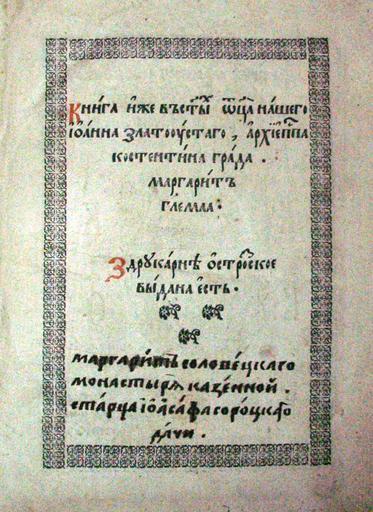 Книга иже въ ст҃ы ѿц҃а нашего
Іѡанна златоꙋстаго, архїепⷭ҇па
костентина града.
маргаритъ
гл҃емаа:
Здрꙋкарнѣ острозское
выдана естъ.
маргаритъ соловецкаго
монастыря казенной.
старца іѡасафа сороцкаго
дачи.